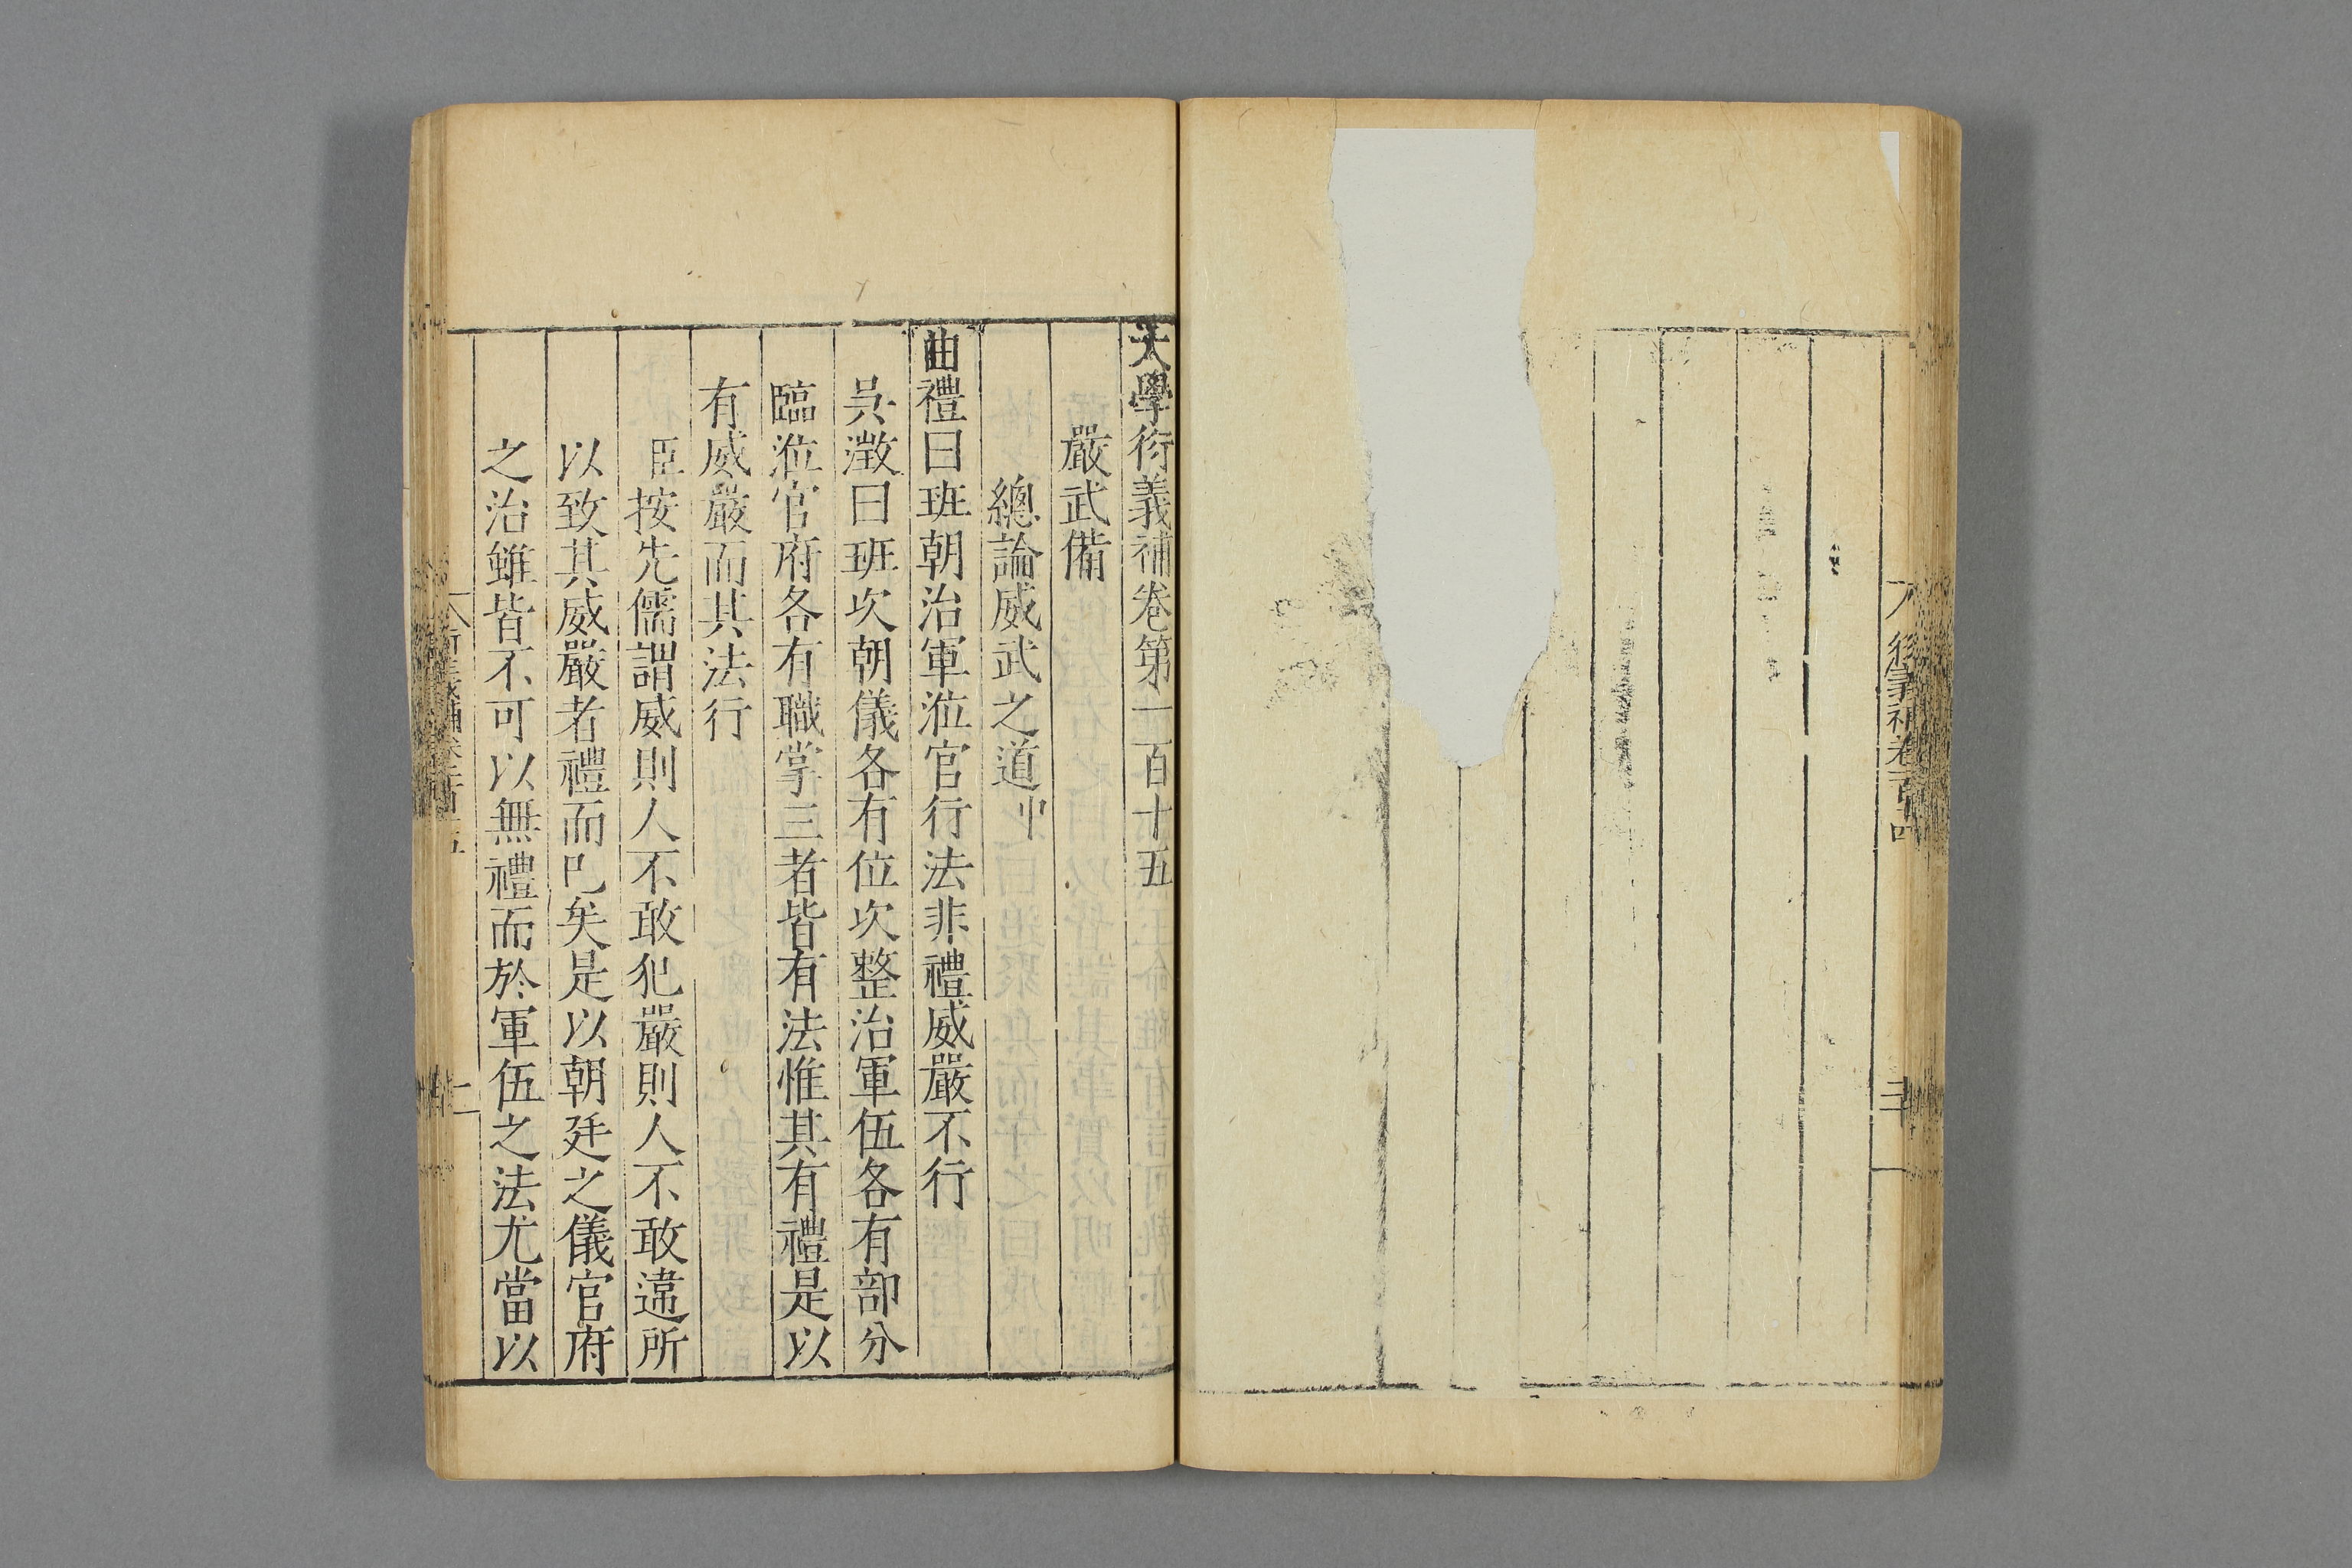 大學衍義補卷第一百十五
嚴武備
總論威武之道中
曲禮曰班朝治軍涖官行法非禮威嚴不行
吳澂曰班次朝儀各有位次整治軍伍各有部分
臨涖官府各有職掌三者皆有法惟其有禮是以
有威嚴而其法行
臣按先儒謂威則人不敢犯嚴則人不敢違所
以致其威嚴者禮而已矣是以朝廷之儀官府
之治雖皆不可以無禮而於軍伍之法尤當以